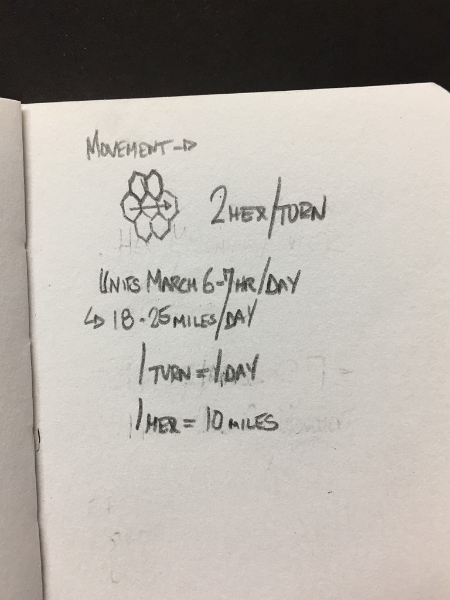 MOVEMENT →
2 HEX/TURN
UNITS MARCH 6-7 HR/DAY
↳ 18-25 MILES/DAY
1 TURN = 1 DAY
1 HEX = 10 MILES